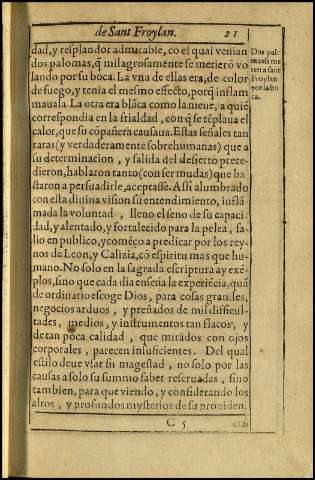 de Sant Froylan. 21
dad, y resplandor admirable, cō el qual venian
dos palomas, q̃ milagrosamente se metierō vo
lando por su boca. La vna de ellas era, de color
de fuego, y tenia el mesmo effecto, porq̃ inflam
maua la. La otra era blāca como la nieue, a quiē
correspondia en la frialdad, con q̃ se tēplaua el
calor, que su cōpañera causaua. Estas señales tan
raras (y verdaderamente sobrehumanas) que a
su determinacion, y salida del desierto prece-
dieron, hablaron tanto (con ser mudas) que ba
staron a persuadirle, aceptasse. Assi alumbrado
con esta diuina vision su entendimiento, inflā
mada la voluntad, lleno el seno de su capaci
dad, y alentado, y fortalecido para la pelea, sa-
lio en publico, y comēço a predicar por los rey-
nos de Leon, y Galizia, cō espiritu mas que hu-
mano. No solo en la sagrada escriptura ay exē-
plos, sino que cada dia enseña la experiēcia, quā
de ordinario escoge Dios, para cosas grandes,
negocios arduos, y preñados de mil difficul-
tades, medios, y instrumentos tan flacos, y
de tan poca calidad, que mirādos con ojos
corporales, parecen insuficientes. Del qual
estilo deue vsar su magestad, no solo por las
causas a solo su summo saber reseruadas, sino
tambien, para que viendo, y considerando los
altos, y profundos mysterios de su prouiden.
C 5
Dos palo
mas se me
ten a sant
Froylan
por la bo
ca.